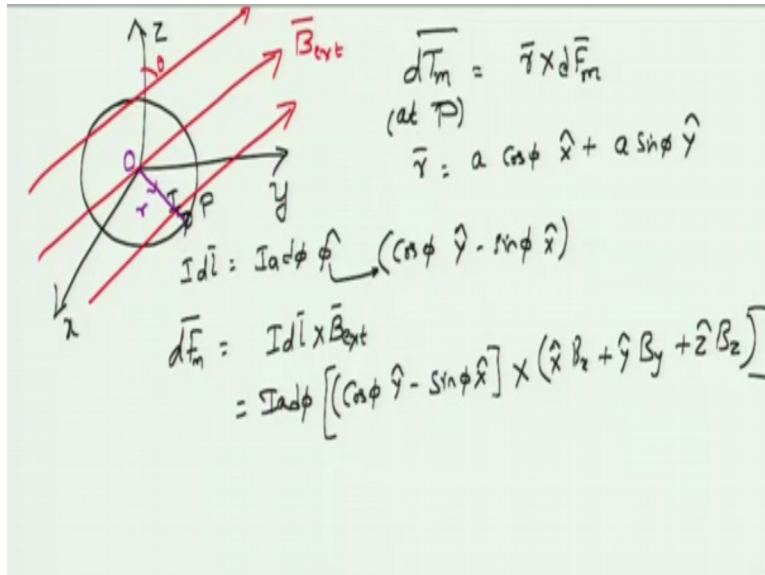 Z
θ
B̅ext
O
y
r̅
I
P
x
d̅T̅m = r̅ × dF̅m
(at P)
r̅ = a cosϕ x̂ + a sinϕ ŷ
Idl̅ = Iadϕ ϕ̂ → (cosϕ ŷ - sinϕ x̂)
dF̅m = Idl̅ × B̅ext
= Iadϕ [(cosϕ ŷ - sinϕ x̂] × (x̂ Bx + ŷ By + ẑ Bz)]